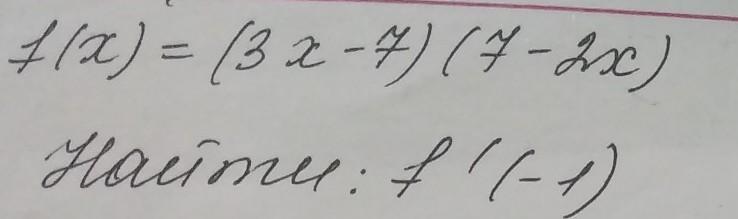 f(x) = (3x - 7)(7 - 2x)
Найти: f '(-1)